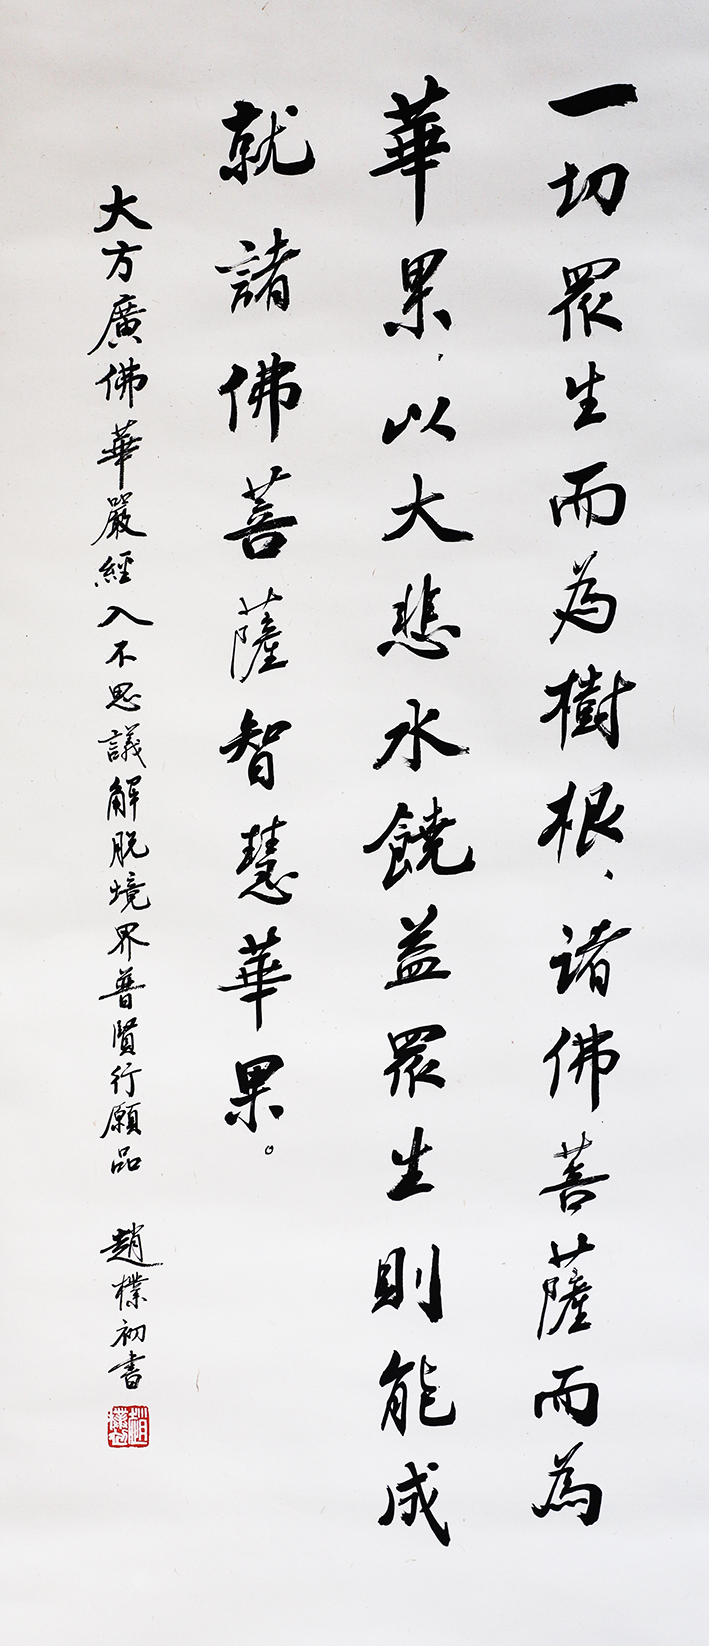 一切眾生而為樹根、諸佛菩薩而為
華果，以大悲水饒益眾生則能成
就諸佛菩薩智慧華果。
大方廣佛華嚴經入不思議解脫境界普賢行願品 趙樸初書
趙樸初